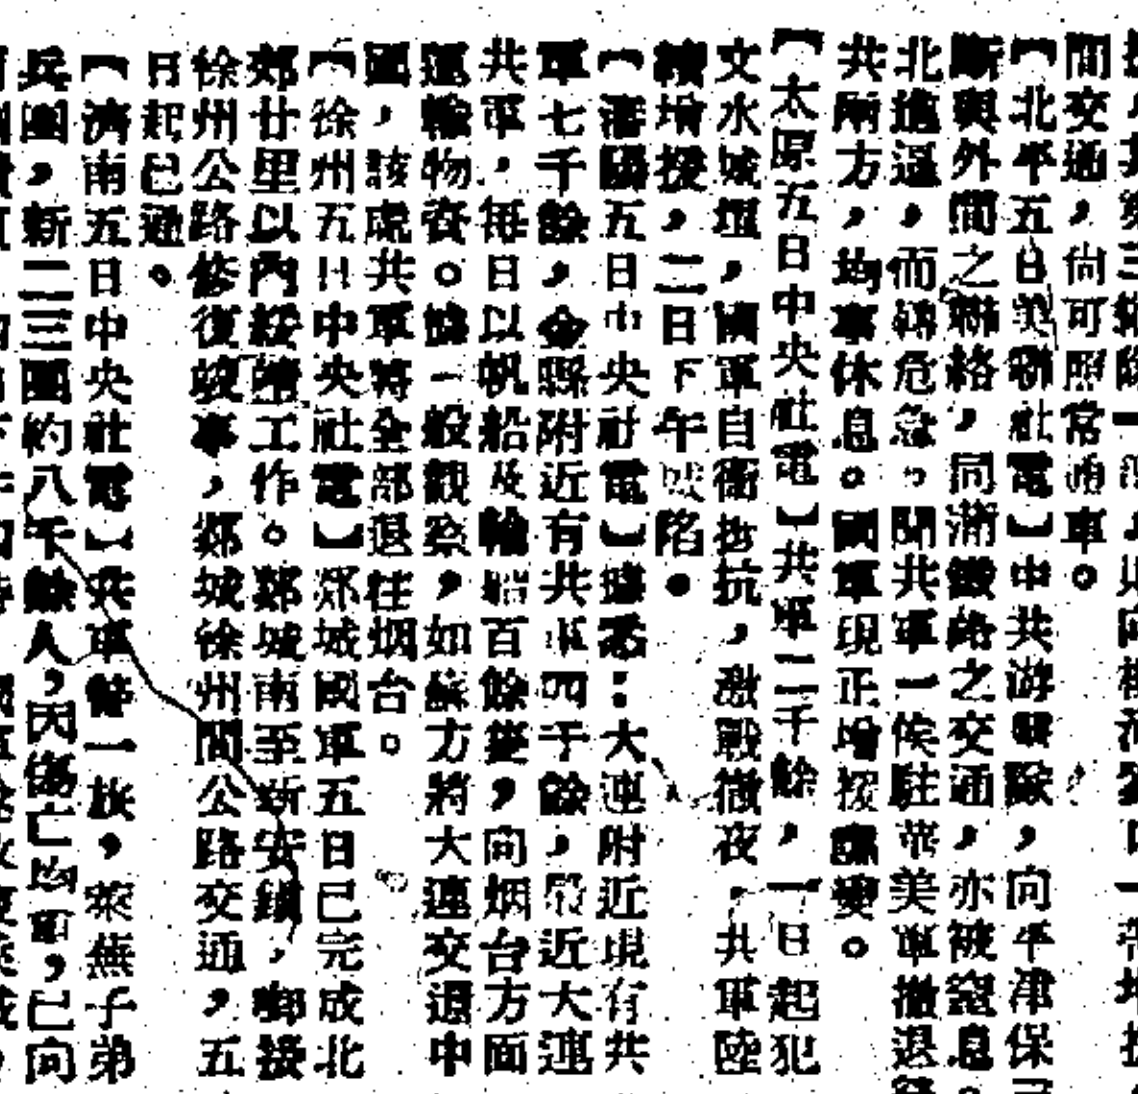 間交通，尙可照常通車。
【北平五日美聯社電】中共游擊隊，向平津保
斷與外間之聯絡，同滿鐵路之交通，亦被窒息。
北進逼，而轉危急。聞共軍一俟駐華美軍撤退
共兩方，均事休息。國軍現正增援
【太原五日中央社電】共軍二千餘，一日起犯
文水城垣，國軍自衞抵抗，激戰徹夜，共軍陸
續增援，二日下午城陷。
【瀋陽五日中央社電】據悉：大連附近現有共
軍七千餘，金縣附近有共軍四千餘，最近大連
共軍，每日以帆船及輪船百餘艘，向烟台方面
運輸物資。據一般觀察，如蘇方將大連交還中
國，該處共軍將全部退往烟台。
【徐州五日中央社電】郯城國軍五日已完成北
郊廿里以內綏靖工作。郯城南至新安鎮，啣接
徐州公路修復竣事，郯城徐州間公路交通，五
日起已通。
【濟南五日中央社電】共軍警一旅，萊蕪子弟
兵團，新二三團約八千餘人，因傷亡均重，已向